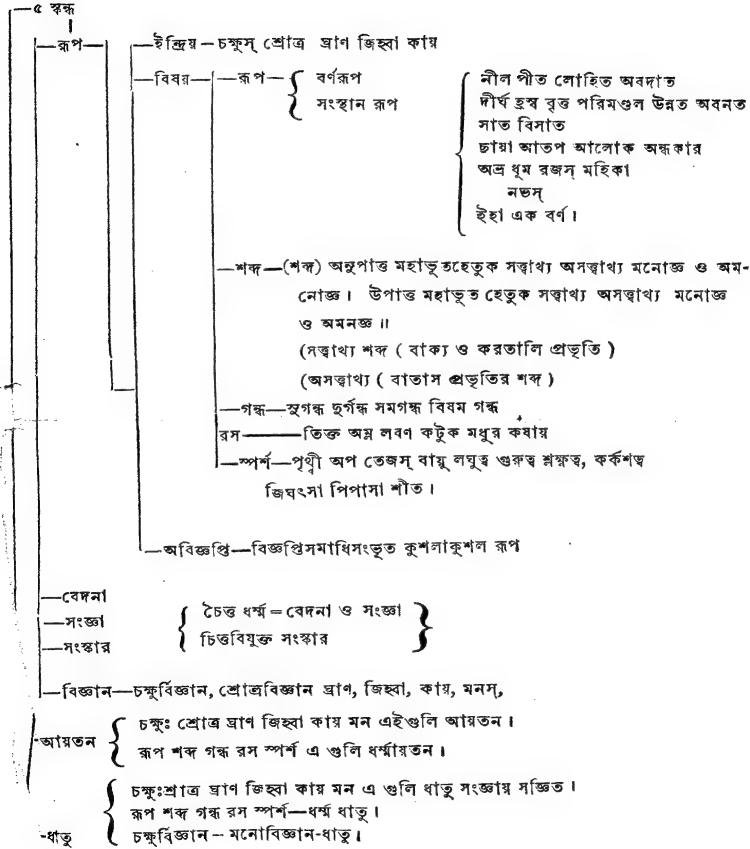 ৫ স্কন্ধ
রূপ
ইন্দ্রিয় – চক্ষুস্ শ্রোত্র ঘ্রাণ জিহ্বা কায়
বিষয় — রূপ — { বর্ণরূপ
সংস্থান রূপ
নীল পীত লোহিত অবদাত
দীর্ঘ হ্রস্ব বৃত্ত পরিমণ্ডল উন্নত অবনত
সাত বিসাত
চায়া আতপ আলোক অন্ধকার
অভ্র ধূম রজস্ মহিকা
নভস্
ইহা এক বর্ণ।
শব্দ — (শব্দ) অনুপাত্ত মহাভূতহেতুক সত্ত্বাখ্য অসত্ত্বাখ্য মনোজ্ঞ ও অম-
নোজ্ঞ। উপাত্ত মহাভূত হেতুক সত্ত্বাখ্য অসত্ত্বাখ্য মনোজ্ঞ
ও অমনজ্ঞ ॥
(সত্ত্বাখ্য শব্দ ( বাক্য ও করতালি প্রভৃতি )
(অসত্ত্বাখ্য ( বাতাস প্রভৃতির শব্দ )
গন্ধ — সুগন্ধ দুর্গন্ধ সমগন্ধ বিষম গন্ধ
রস — তিক্ত অম্ল লবণ কটুক মধুর কষায়
স্পর্শ — পৃথ্বী অপ তেজস্ বায়ু লঘুত্ব গুরুত্ব শ্লক্ষ্ণত্ব, কর্কশত্ব
জিঘৎসা পিপাসা শীত।
অবিজ্ঞপ্তি — বিজ্ঞপ্তিসমাধিসংভূত কুশলাকুশল রূপ
বেদনা
সংজ্ঞা
সংস্কার
{ চৈত্ত ধর্ম্ম = বেদনা ও সংজ্ঞা
চিত্তবিযুক্ত সংস্কার }
বিজ্ঞান — চক্ষুর্বিজ্ঞান, শ্রোত্রবিজ্ঞান ঘ্রাণ, জিহ্বা, কায়, মনস্,
আয়তন { চক্ষুঃ শ্রোত্র ঘ্রাণ জিহ্বা কায় মন এইগুলি আয়তন।
রূপ শব্দ গন্ধ রস স্পর্শ এ গুলি ধর্ম্মায়তন।
চক্ষুঃশ্রাত্র ঘ্রাণ জিহ্বা কায় মন এ গুলি ধাতু সংজ্ঞায় সজ্ঞিত।
রূপ শব্দ গন্ধ রস স্পর্শ—ধর্ম্ম ধাতু।
-ধাতু { চক্ষুর্বিজ্ঞান – মনোবিজ্ঞান-ধাতু।